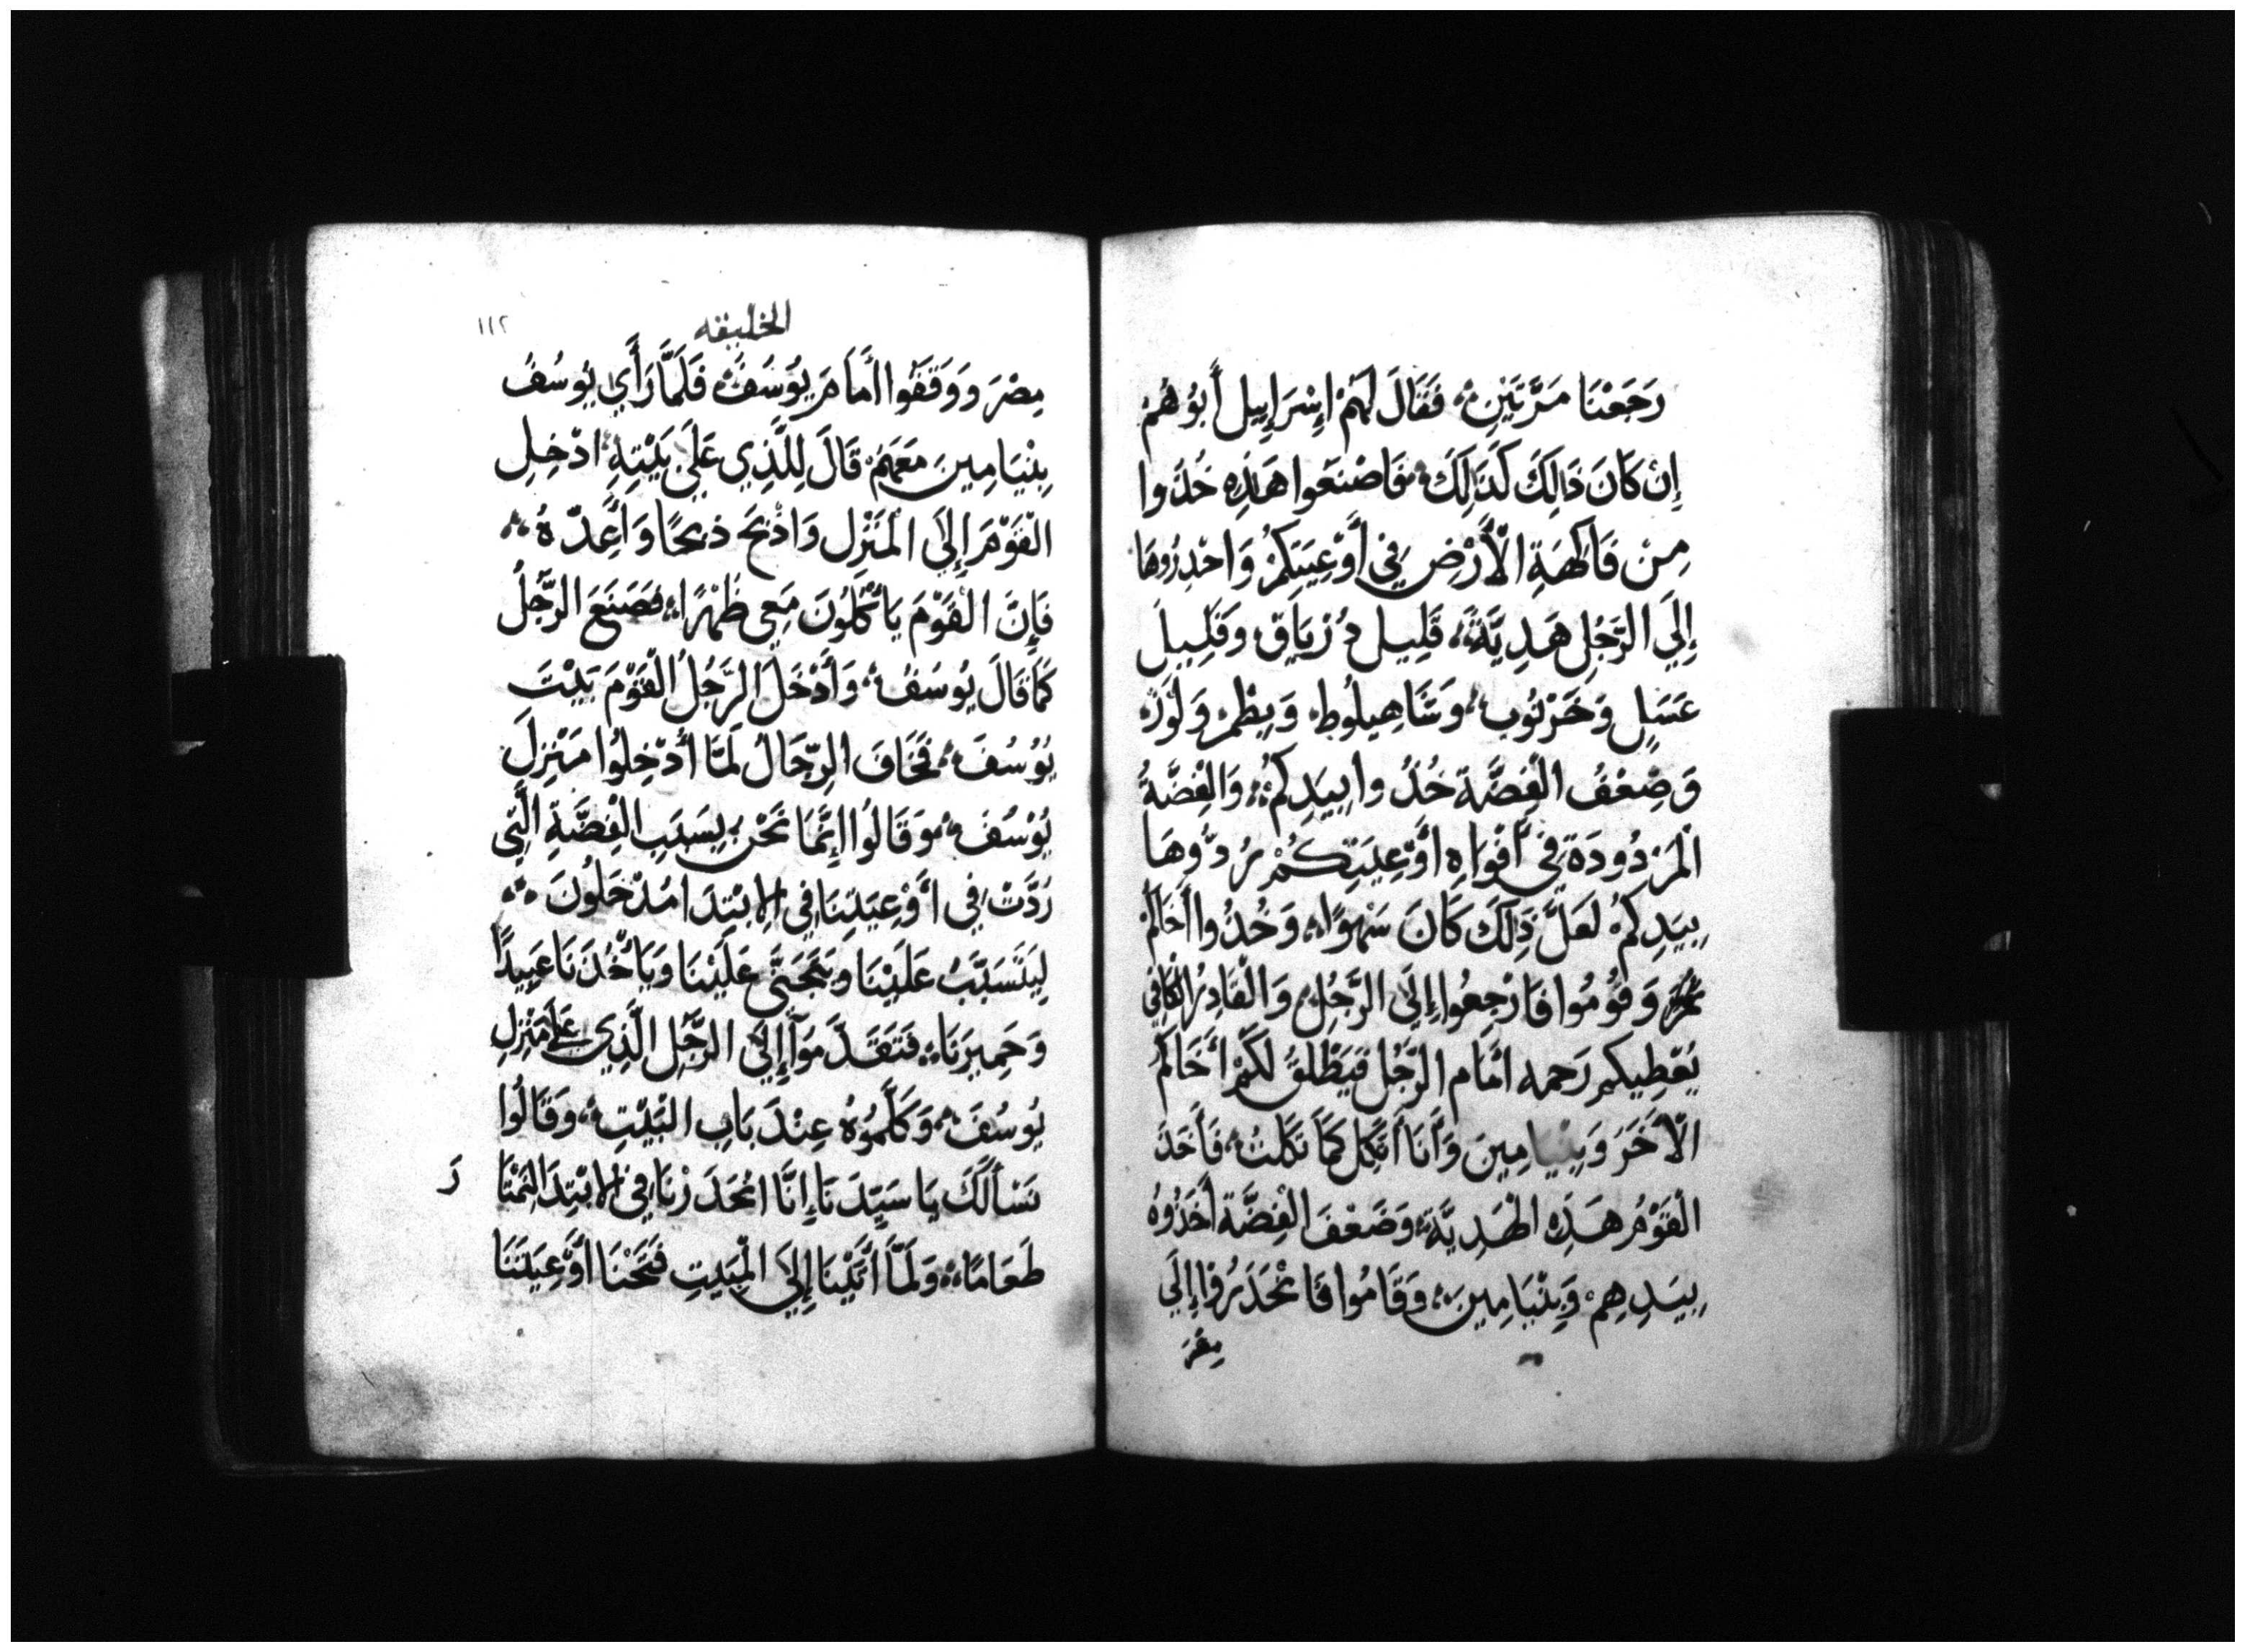 رَجَعْنَا مَرَّتَيْنِ فَقَالَ لَهُمْ اِسْرَايِيل أَبُوهُمْ
إِن كَانَ ذَالِكَ كَذَالِكَ فَاصْنَعُوا هَذِه خُذُوا
مِنْ فَاكِهَةِ الْأَرْضِ فِي أَوْعِيَتِكُمْ وَاحْدِرُوهَا
إِلَي الرَّجُلِ هَدِيَّةً قَلِيل دُرْيَاق وَقَلِيل
عَسَلٍ وَخَرْنُوب وَشَاهِبلُوط وَبِطْمٍ وَلَوْزٍ
وَضِعْفُ الْفِضَّة خُذُوا بِيَدِكُمْ وَالْفِضَّةُ
الْمَرْدُودَة فِي أَفْوَاهِ أَوْعِيَتِكُمْ رُدُّوهَا
بِيَدِكُمْ لَعَلَّ ذَلِكَ كَانَ سَهْوًا وَخُذُوا أَخَاكُمْ
وَقُومُوا فَارْجِعُوا إِلَى الرَّجُلِ وَالْقَادِرُ الْكَافِي
يُعْطِيكم رَحمه أمَام الرَّجُل فَيُطْلِقُ لَكُمْ أَخَاكُمْ
الْأخَرَ وَبِنْيَامِينَ وَأَنَا أَثكل كَمَا ثكلتُ فَأَخَذَ
الْقَوْمُ هَذِهِ الْهَدِيَّة وَضَعْفَ الْفِضَّة أَخَذُوهُ
بِيَدِهِمْ وَبِنْيَامِين وَقَامُوا فَانْحَدَرُوا إِلَي
مِصْرَ
الخليقه
١١٢
مِصْرَ وَوَقَفُوا أَمَامَ يُوسَفَ فَلَمَّا رَأَي يُوسُفُ
بِنْيَامِينَ مَعَهُمْ قَالَ لِلَّذِي عَلَي بَيْتِهِ ادْخِلِ
الْقَوْمَ إِلَى الْمَنْزِل وَاذْبَح ذبحًا وَأَعِدّهُ
فَإِنَّ الْقَوْمَ يَأْكُلُونَ مَعِي ظُهْرًا فَصَنَعَ الرَّجُلُ
كَمَا قَالَ يُوسَفُ وَأَدْخَلَ الرَّجُلُ الْقَوْمَ بَيْتَ
يُوسُفَ فَخَافَ الرِّجَالُ لَمَّا أُدْخِلُوا مَنْزِلَ
يُوسُفَ وَقَالُوا إِنَّمَا نَحْنُ بِسَبَبِ الْفِضَّةِ الَّتِي
رُدَّتْ فِي أَوْعِيَتِنَا فِي الِابْتِدَا مُدْخَلُونَ
لِيَتَسَبَّبُ عَلَيْنَا وَيَتَجَنَّي عَلَيْنَا وَيَأْخُذَنَا عَبِيدًا
وَحَمِيرَنَا فَتَقَدَّمَوُا إِلَي الرَّجُلِ الَّذِي عَلَي مَنْزِلِ
يُوسُفَ وَكَلَّمُوهُ عِنْدَ بَابِ الْبَيْتِ وَقَالُوا
نَسْأَلُكَ يَا سَيِّدَنَا إِنَّا انْحَدَرْنَا فِي الِابْتِدَا لِنَمْتَا
رَ
طَعَامًا وَلَمَّا أَتَيْنَا إِلَي الْمَبِيتِ فَتَحْنَا أَوْعِيَتَنَا